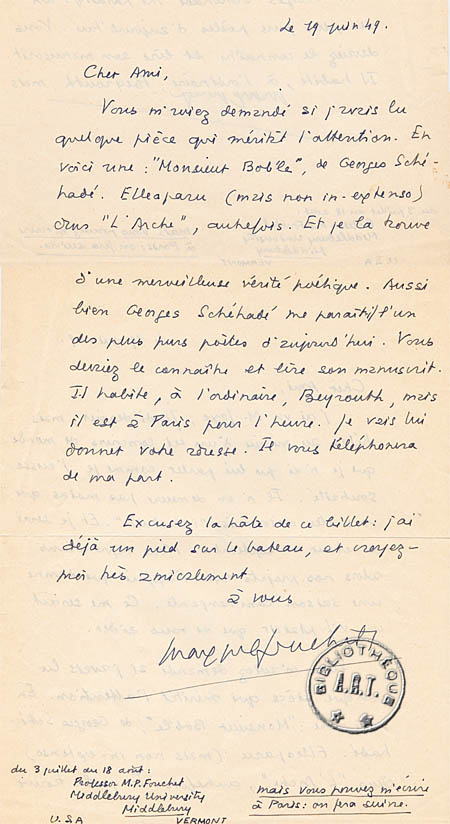 Le 19 juin 49.
Cher Ami,
Vous m'aviez demandé si j'avais lu
quelque pièce qui méritât l'attention. En
voici une : "Monsieur Bob'le", de Georges Sché-
hadé. Elle a paru (mais non in-extenso)
dans "L'Arche", autrefois. Et je la trouve
d'une merveilleuse vérité poétique. Aussi
bien Georges Schéhadé me paraît l'un
des plus purs poètes d'aujourd'hui. Vous
devriez le connaître et lire son manuscrit.
Il habite, à l'ordinaire, Beyrouth, mais
il est à Paris pour l'heure. Je vais lui
donner votre adresse. Il vous téléphonera
de ma part.
Excusez la hâte de ce billet : j'ai
déjà un pied sur le bateau, et croyez-
moi très amicalement
à vous
BIBLIOTHÈQUE
A.R.T.
du 3 juillet au 18 août :
Professor M.P. Fouchet
Middlebury University
Middlebury
VERMONT
U.S.A
mais vous pouvez m'écrire
à Paris : on fera suivre.